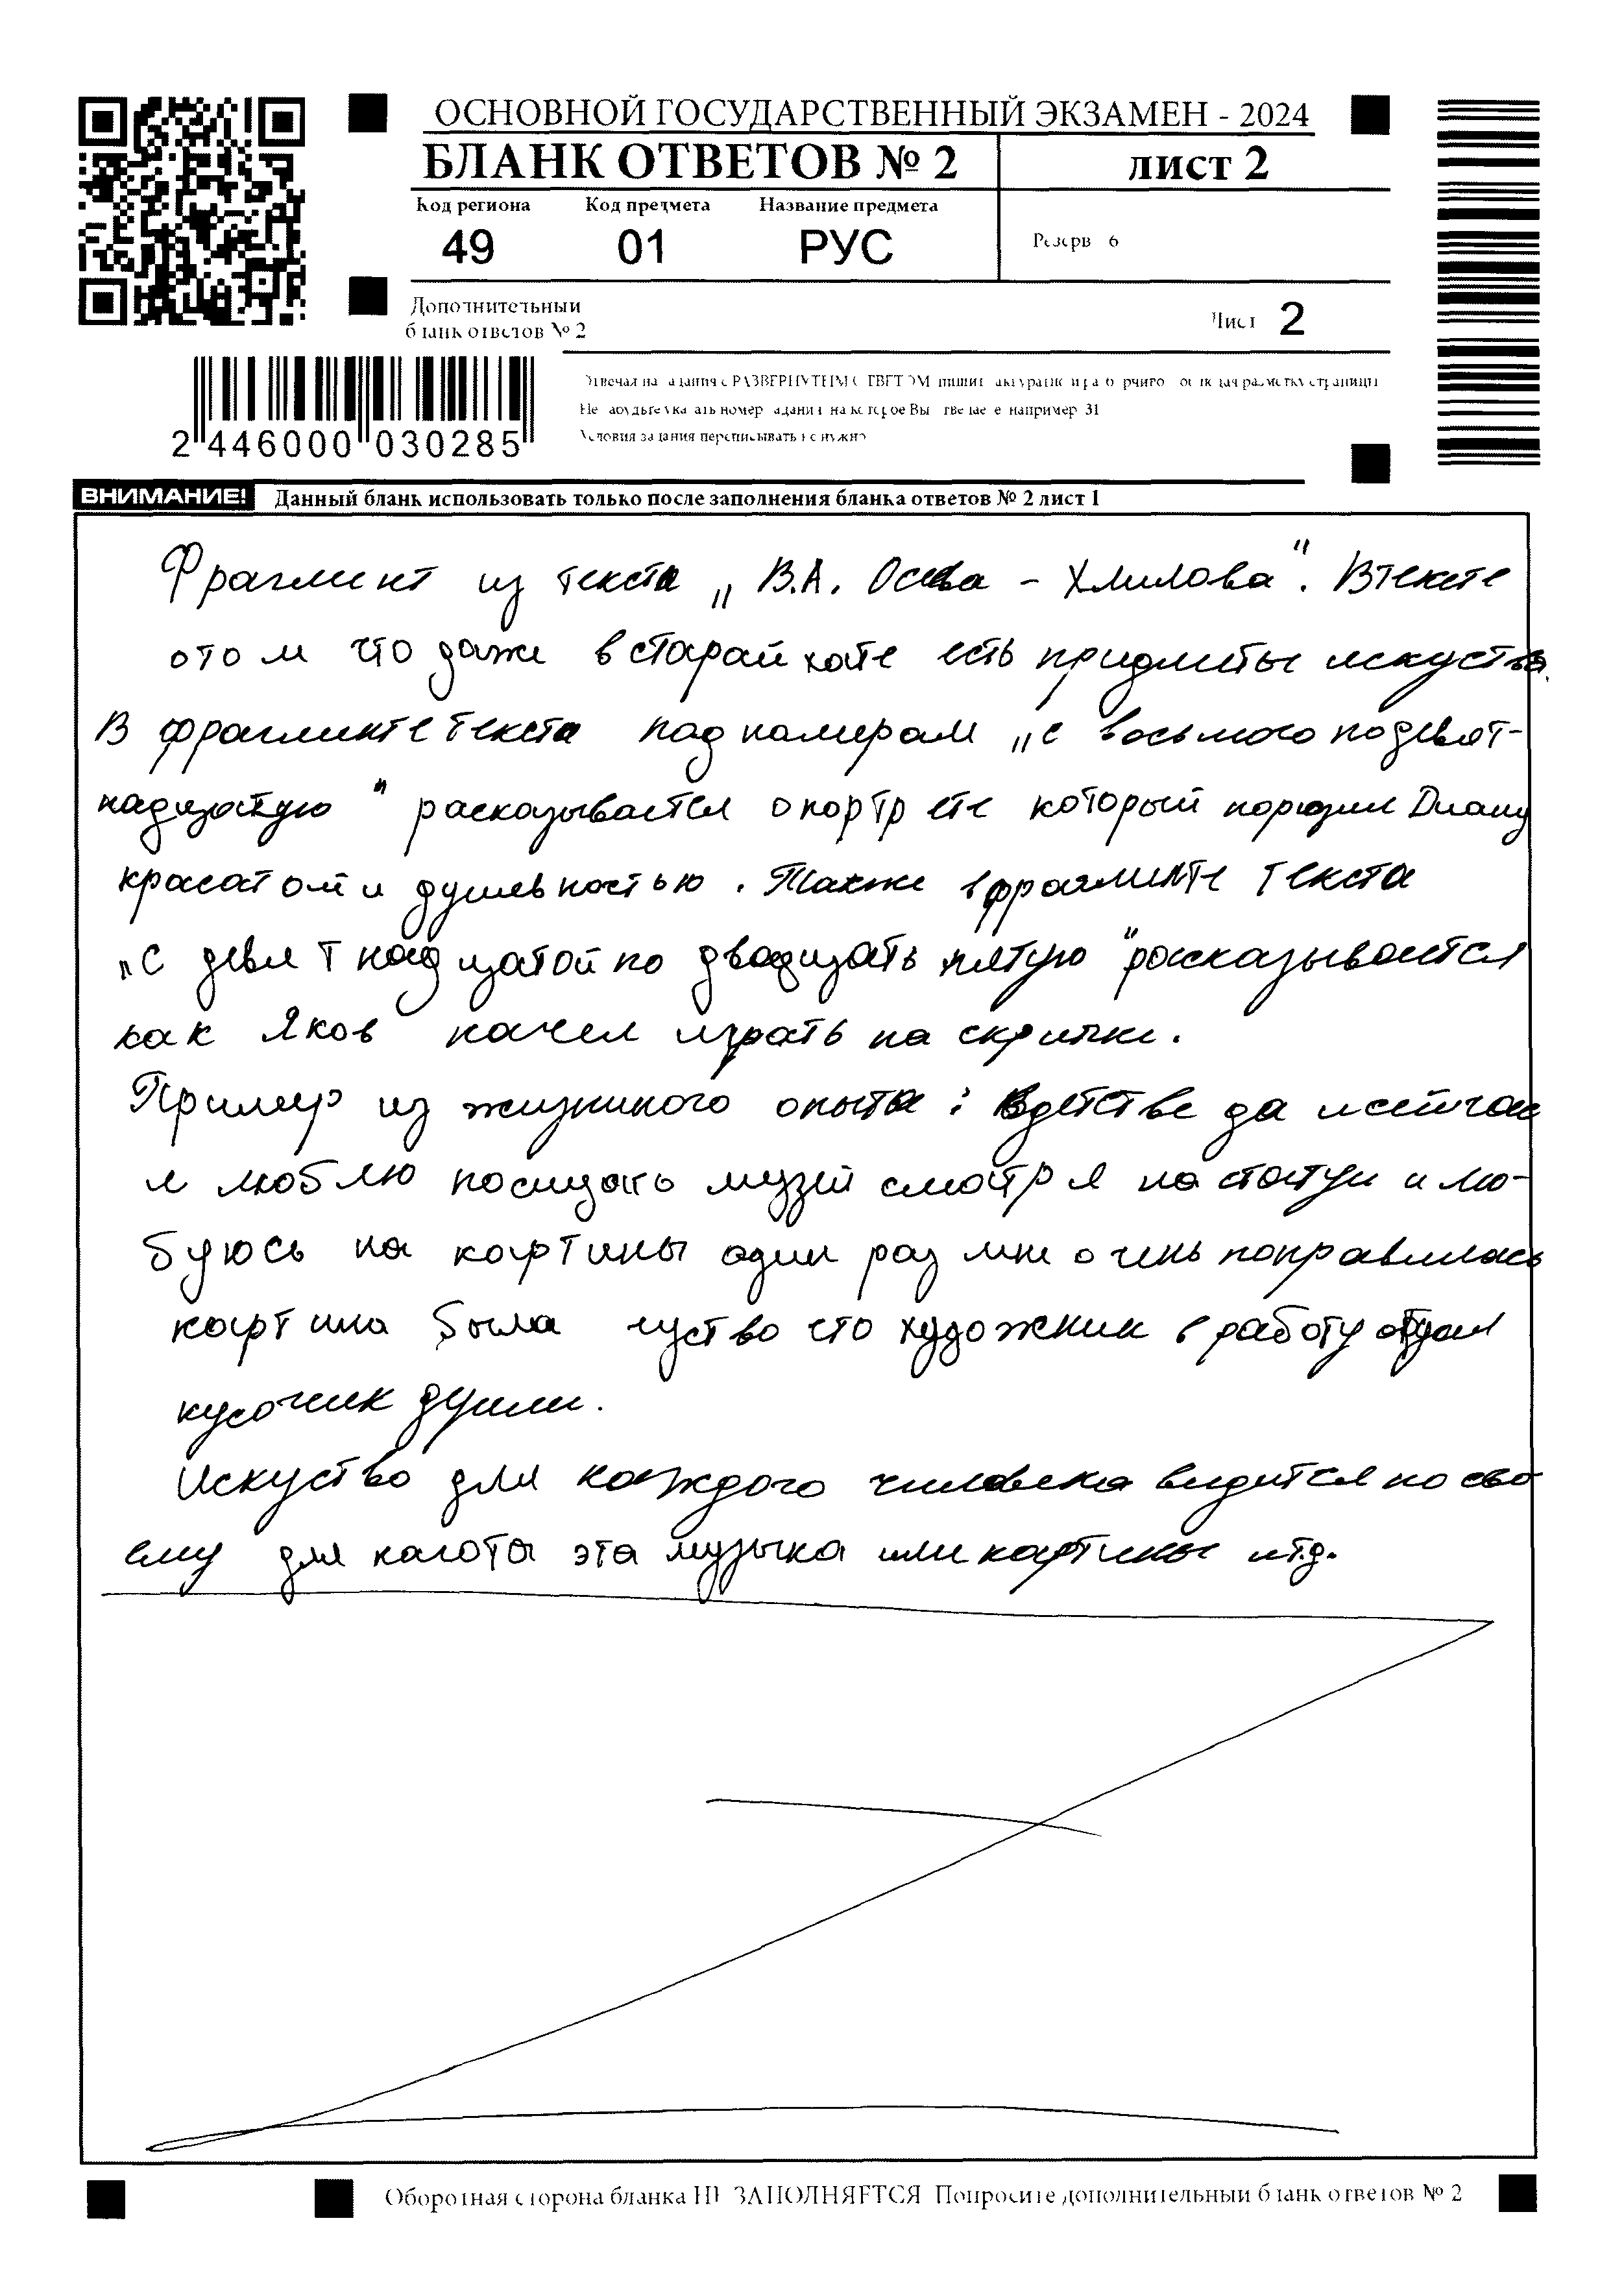 ОСНОВНОЙ ГОСУДАРСТВЕННЫЙ ЭКЗАМЕН - 2024
БЛАНК ОТВЕТОВ № 2
лист 2
Код региона Код предмета Название предмета
49 01 РУС
Резерв 6
Дополнительный
бланк ответов № 2
Лист 2
2 446000 030285
Условия задания переписывать не нужно
ВНИМАНИЕ! Данный бланк использовать только после заполнения бланка ответов № 2 лист 1
Фрагмент из текста „В.А. Осева - Хмилова". В тексте
отом что даже в старай хате есть придметы искуства.
В фрагменте текста под намерам „с восьмого по девят-
надцатую" расказывается о портрете который поразил Диану
красатой и душевностью. Также в фрагменте текста
„С девятнадцатой по двадцать пятую" рассказывается
как Яков начел играть на скрипке.
Пример из жизниного опыта: В детстве да и сейчас
я люблю посищать музей смотря на статуи и лю-
буюсь на картины один раз мне очень понравилась
картина была чуство что художник в работу отдал
кусочик души.
Искуство для каждого человека видится по сво
ему для кагота эта музыка или картины и т.д.
Оборотная сторона бланка НЕ ЗАПОЛНЯЕТСЯ Попросите дополнительный бланк ответов № 2